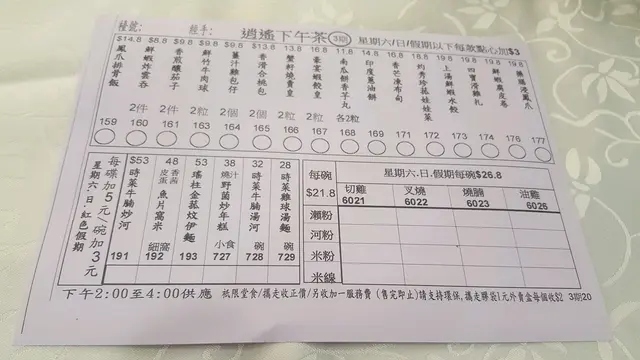 檯號: 經手: 逍遙下午茶 3期 星期六/日/假期以下每款點心加$3
$14.8 $8.8 $9.8 $9.8 $9.8 $13.8 13.8 16.8 11.8 14.8 16.8 16.8 19.8 19.8 19.8 19.8
鳳爪排骨飯
鮮蝦炸雲吞 2件
香煎釀茄子 2件
鮮竹牛肉球 2粒
薑汁雞包仔 2個
香滑合桃包 2個
蟹籽燒賣皇 2粒
豪宴蝦餃皇 2粒
南瓜餅香芋丸 各2粒
印度蔥油餅
香芒凍布甸
灼秀珍菇娃娃菜
上湯鮮蝦水餃
四寶滑雞扎
鮮蝦腐皮卷
159 160 161 163 164 165 166 167 168 169 171 172 173 174 176 177
星期六.日.紅色假期
每碟加5元/碗加3元
$53 時菜牛腩炒河 191
48 皮蛋香茜魚片窩米 細窩 192
53 瑤柱金菇炆伊麵 193
38 燒汁野菌炒年糕 小食 727
32 時菜牛腩湯河 碗 728
28 時菜雞球湯麵 碗 729
每碗 星期六.日.假期每碗$26.8
$21.8 切雞 叉燒 燒腩 油雞
6021 6022 6023 6026
瀨粉
河粉
米粉
米線
下午2:00至4:00供應 祇限堂食/攜走收正價/另收加一服務費 (售完即止)請支持環保,攜走膠袋1元外賣盒每個收$2 3期20